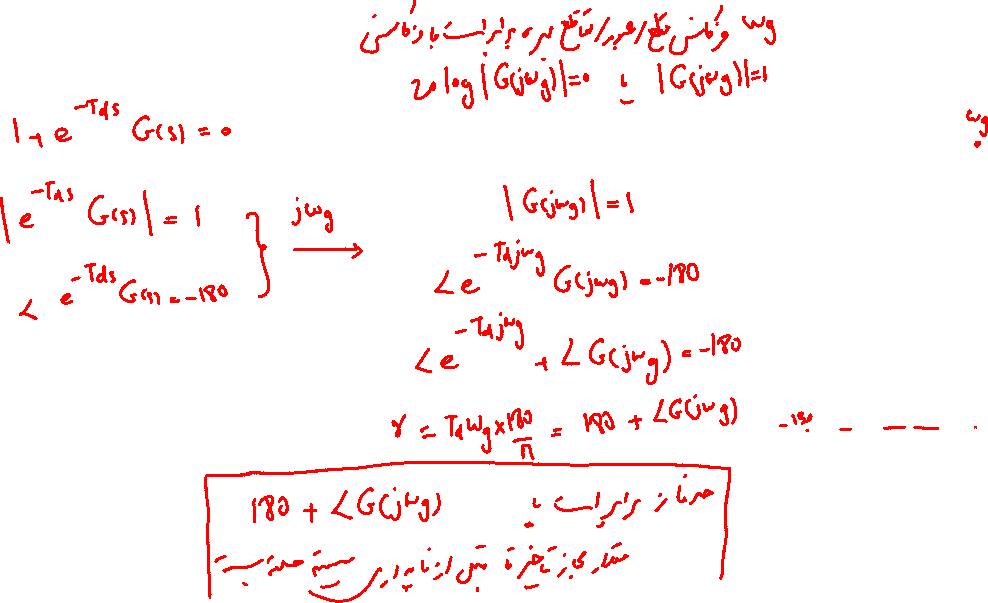 ωg فرکانس قطع/عبور/تقاطع بهره برابر است با فرکانسی
20 log |G(jωg)|=0 یا |G(jωg)|=1
ωg
1 + e^{-Tds} G(s) = 0
|e^{-Tds} G(s)| = 1
∠ e^{-Tds} G(s) = -180
jωg
|G(jωg)| = 1
∠e^{-Tdjωg} G(jωg) = -180
∠e^{-Tdjωg} + ∠G(jωg) = -180
γ = Tdωg × 180/π = 180 + ∠G(jωg) -180
حد فاز برابر است با 180 + ∠G(jωg)
مقدار مجاز تاخیر تا قبل از ناپایداری سیستم حلقه بسته